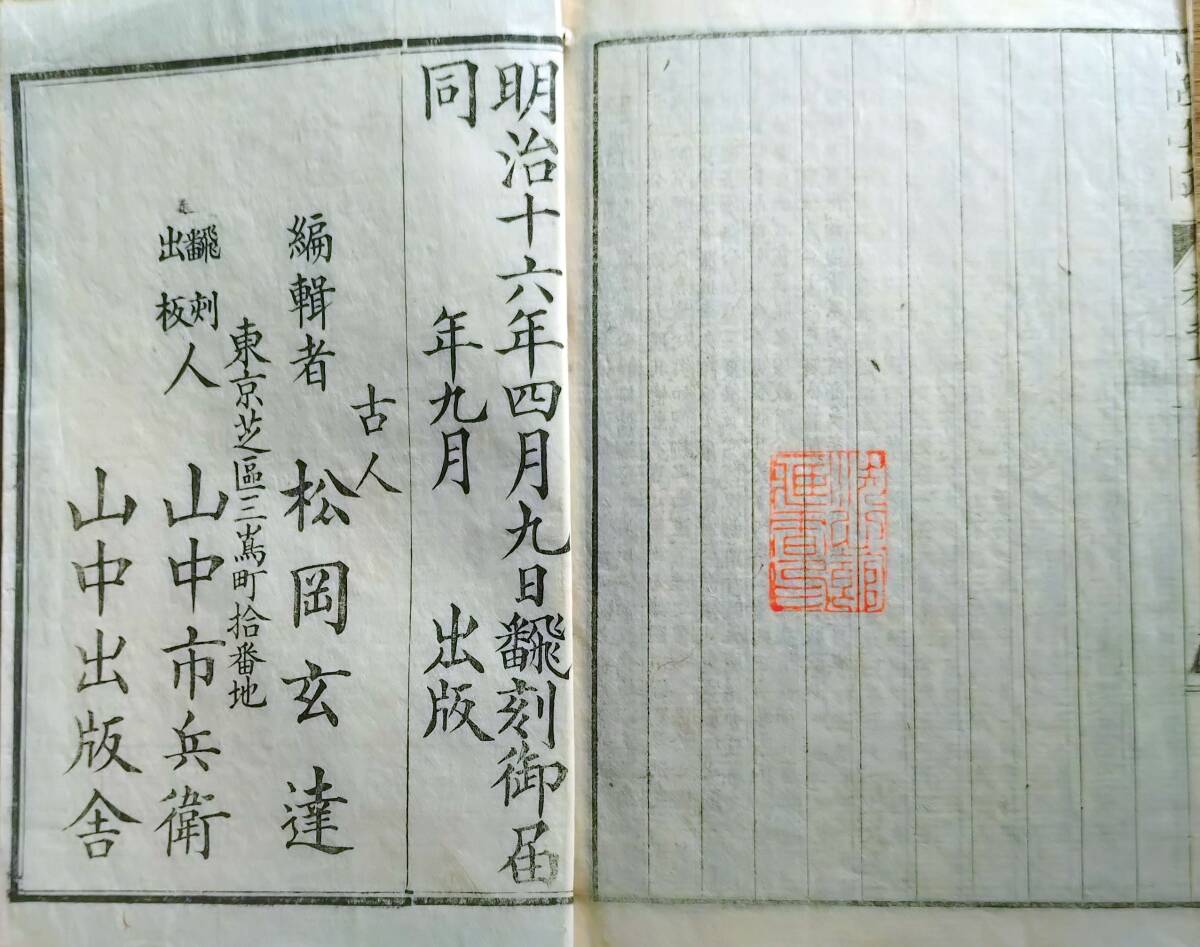 明治十六年四月九日飜刻御届
同 年九月 出版
古人
編輯者 松岡玄達
東京芝區三嶌町拾番地
飜刻
出板
人 山中市兵衛
山中出版舎